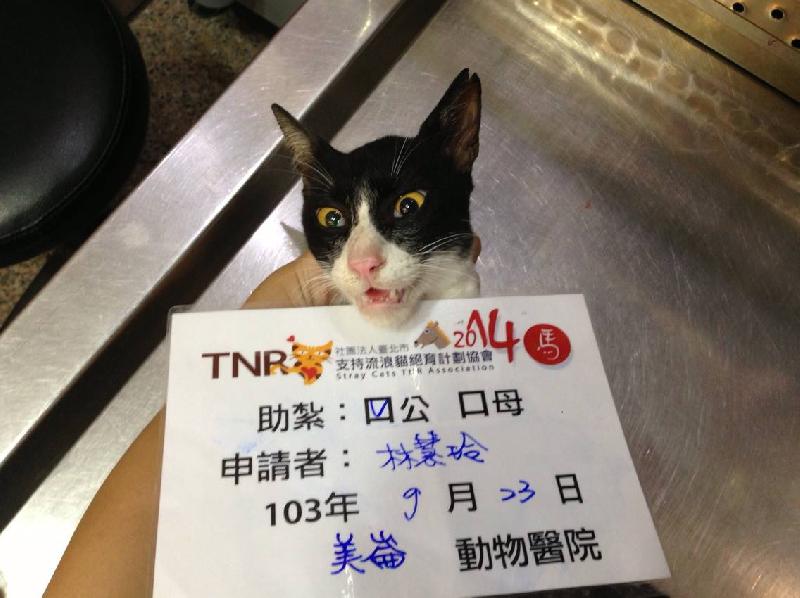 TNR 社團法人臺北市 2014 馬
支持流浪貓絕育計劃協會
Stray Cats TNR Association
助紮：☑公 口母
申請者：林慧玲
103年 9月23日
美崙 動物醫院